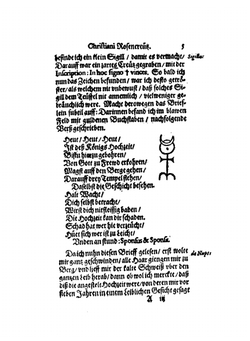 Christiani Rosencreütz. 5
befinde ich ein klein Sigill / damit es vermacht / Sigillu
Darauff war ein zartes Creütz gegraben / mit der
Inscription: In hoc signo † vinces. So bald ich
nun das Zeichen befunden / war ich desto getrö-
ster / als welchem nir unbewust / daß solches Si-
gill dem Teüffel nit annemlich / vielweniger ge-
bräuchlich were. Macht derowegen das Brief-
lein subeil auff: Darinnen befand ich im blawen
Feld mit guldenen Buchstaben / nachfolgende
Verß geschrieben.
Heut / Heut / Heut /
Ist deß Königs Hochzeit /
Bistu hierzu gebohren /
Von Gott zu Frewd erkohren /
Magst auff den Berge gehen /
Darauff drey Tempel stehen /
Daselbst die Geschicht besehen.
Halt Wacht /
Dich selbst betracht /
Wirst dich nit fleissig baden /
Die Hochzeit kan dir schaden.
Schad hat wer hie verzeücht /
Huet sich wer ist zu leicht /
Unden an stund: Sponsus & Sponsa.
Da ich nuhn diesen Brieff gelesen / erst wolte
mir gantz geschwinden / alle Haar giengen mir zu
Berg / und lieff mir der kalte Schweiß uber den
gantzen Leib herab / dann ob wol ich merckte / daß
diß die angestelt Hochzeit were / von deren mir vor
sieben Jahren in einem leiblichen Gesicht gesagt
A iij